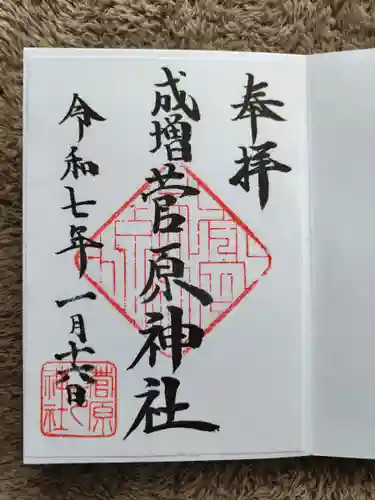 奉拝
成増菅原神社
令和七年一月十六日
菅原
神社